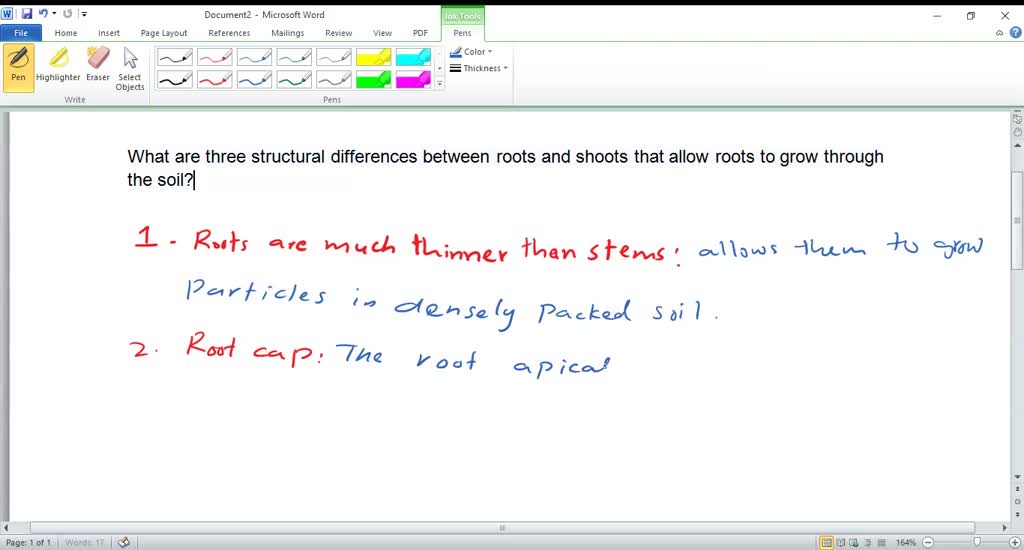 Document2 - Microsoft Word
Ink Tools
File Home Insert Page Layout References Mailings Review View PDF Pens
Pen Highlighter Eraser Select Objects
Color
Thickness
Write Pens
What are three structural differences between roots and shoots that allow roots to grow through
the soil?
1 - Roots are much thinner than stems: allows them to grow
Particles in densely packed soil.
2. Root cap: The root apical
Page: 1 of 1 Words: 17 164%